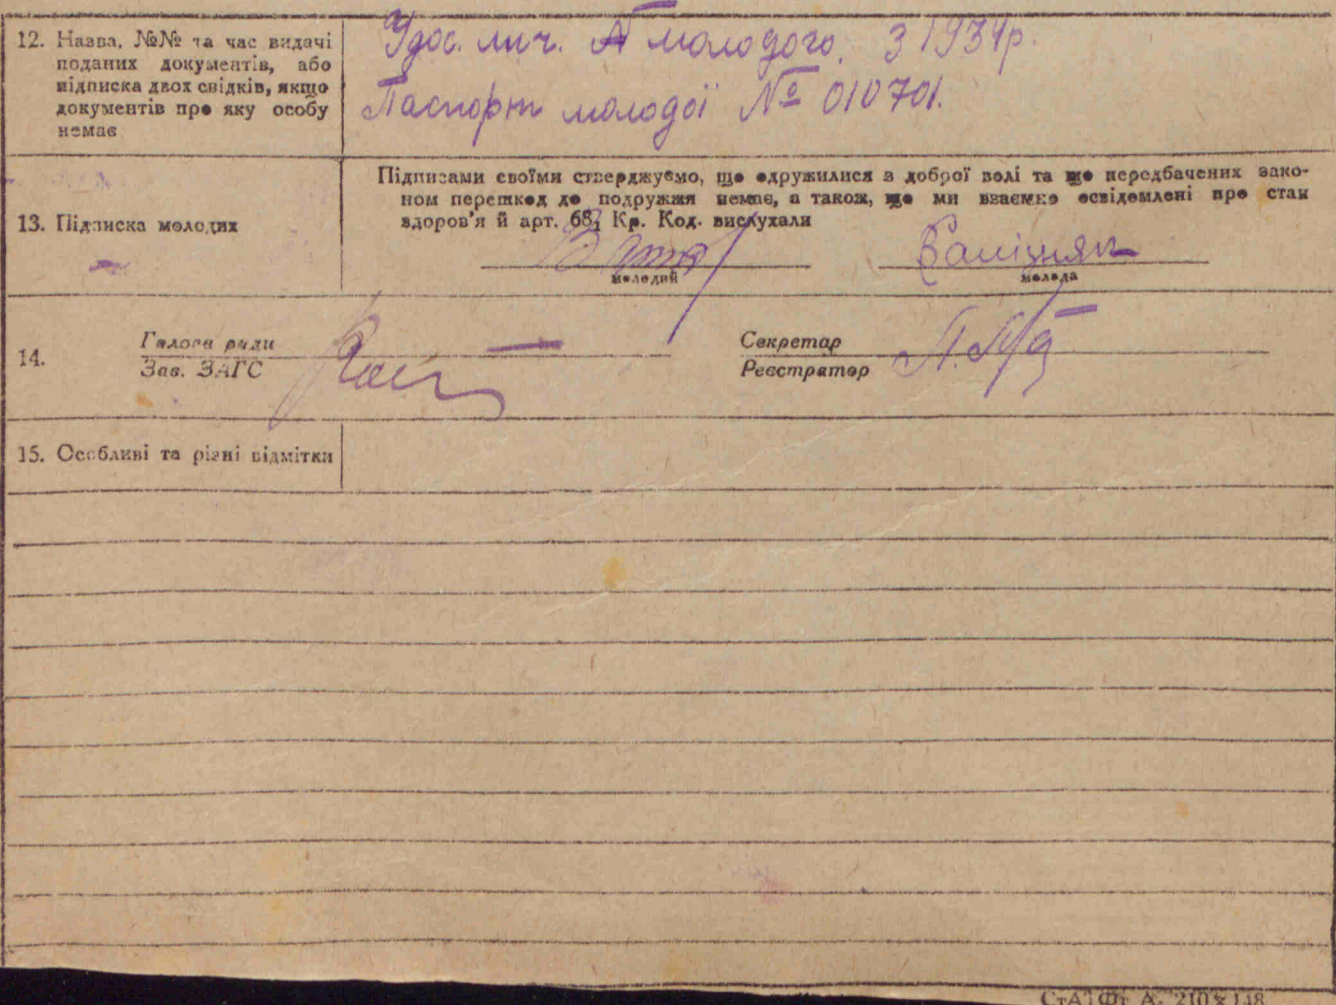 12. Назва, №№ та час видачі
поданих документів, або
підписка двох свідків, якщо
документів про яку особу
немає
Удос. лич. молодого. з 1934р.
Паспорт молодої № 010701.
13. Підписка молодих
Підписами своїми стверджуємо, що одружилися з доброї волі та що передбачених зако-
ном перешкод до подружжя немає, а також, що ми взаємно освідомлені про стан
здоров'я й арт. 68, Кр. Код. вислухали
молодий
молода
14.
Голова ради
Зав. ЗАГС
Секретар
Реєстратор
15. Особливі та різні відмітки
210 х 148